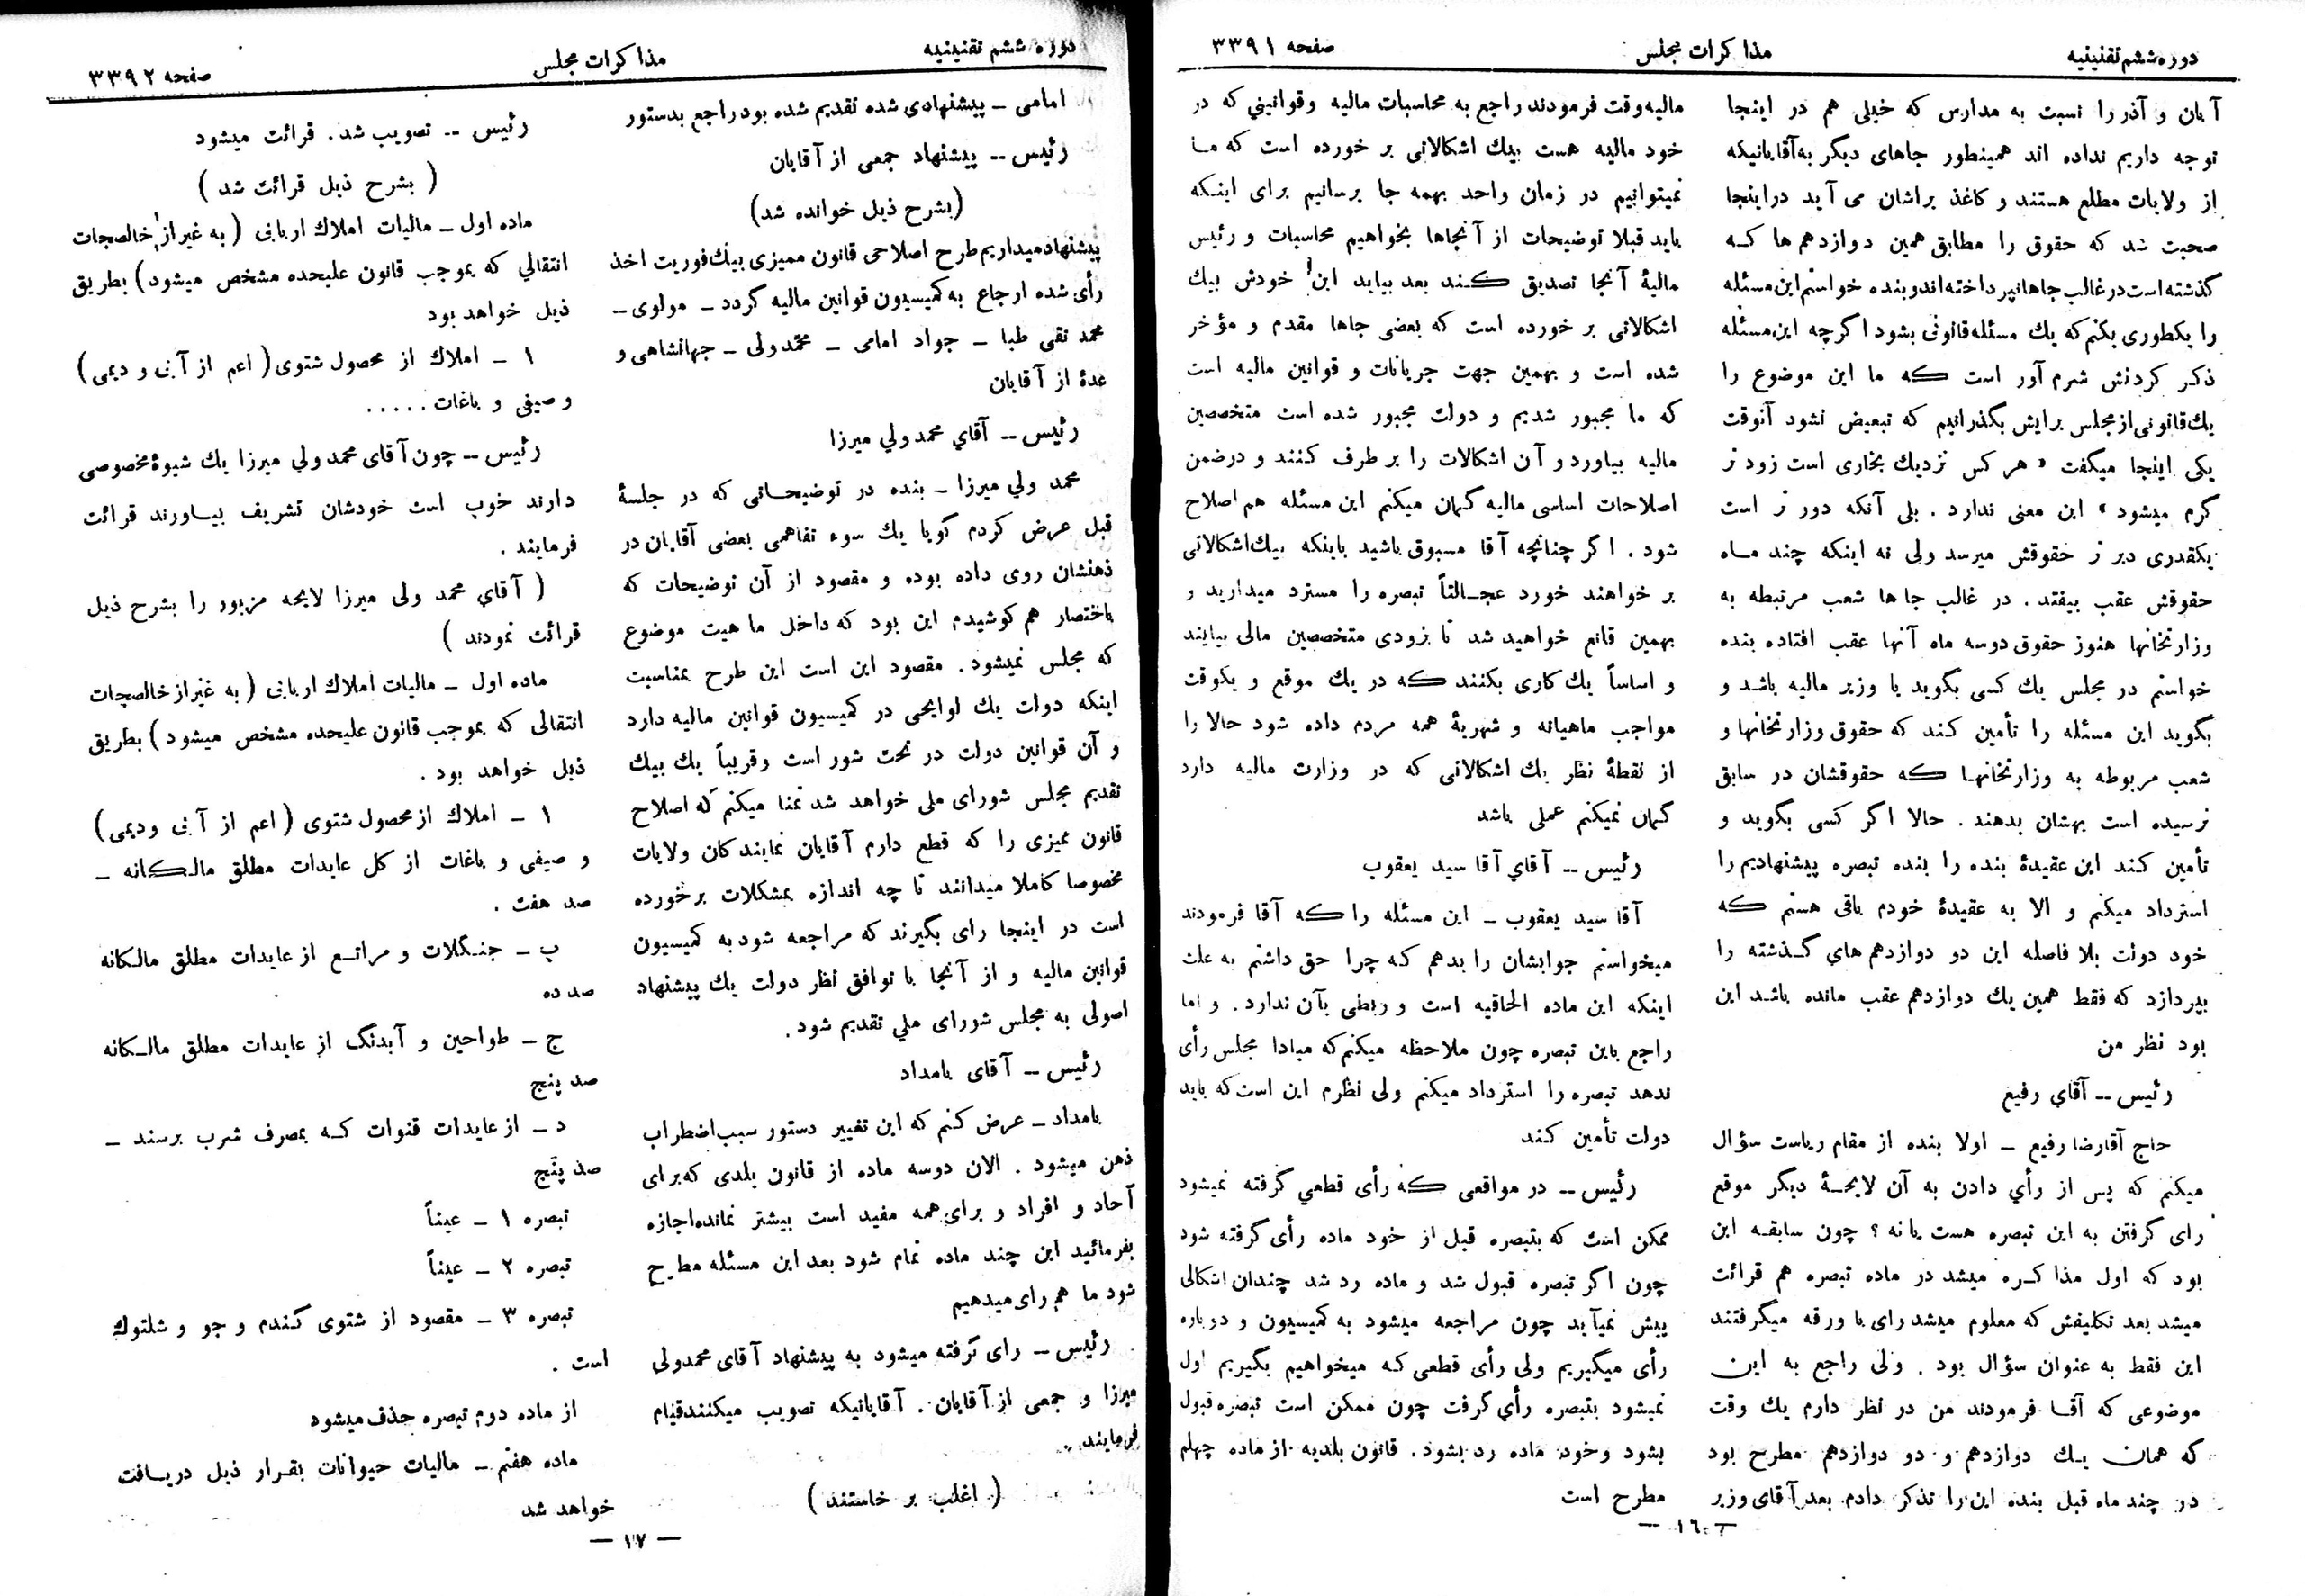 دوره ششم تقنینیه
مذاکرات مجلس
صفحه ۳۳۹۱
آبان و آذر را نسبت به مدارس که خیلی هم در اینجا
توجه داریم نداده اند همینطور جاهای دیگر به آقایانیکه
از ولایات مطلع هستند و کاغذ براشان می آید در اینجا
صحبت شد که حقوق را مطابق همین دوازدهم ها که
گذشته است در غالب جاها نپرداخته‌اند و بنده خواستم این مسئله
را یکطوری بکنم که یك مسئله قانونی بشود اگرچه این مسئله
ذکر کردنش شرم آور است که ما این موضوع را
یك قانونی از مجلس برایش بگذرانیم که تبعیض نشود آنوقت
یکی اینجا میگفت « هر کس نزدیك بخاری است زود تر
گرم میشود » این معنی ندارد . بلی آنکه دور تر است
یکقدری دیر تر حقوقش میرسد ولی نه اینکه چند ماه
حقوقش عقب بیفتد . در غالب جاها شعب مرتبطه به
وزارتخانها هنوز حقوق دوسه ماه آنها عقب افتاده بنده
خواستم در مجلس یك کسی بگوید یا وزیر مالیه باشد و
بگوید این مسئله را تأمین کند که حقوق وزارتخانها و
شعب مربوطه به وزارتخانها که حقوقشان در سابق
نرسیده است بهشان بدهند . حالا اگر کسی بگوید و
تأمین کند این عقیدهٔ بنده را بنده تبصره پیشنهادیم را
استرداد میکنم و الا به عقیدهٔ خودم باقی هستم که
خود دولت بلا فاصله این دو دوازدهم های گذشته را
بپردازد که فقط همین یك دوازدهم عقب مانده باشد این
بود نظر من
رئیس -- آقاي رفیع
حاج آقارضا رفیع – اولا بنده از مقام ریاست سؤال
میکنم که پس از رأي دادن به آن لایحهٔ دیگر موقع
رای گرفتن به این تبصره هست یا نه ؟ چون سابقه این
بود که اول مذاکره میشد در ماده تبصره هم قرائت
میشد بعد تکلیفش که معلوم میشد رای با ورقه میگرفتند
این فقط به عنوان سؤال بود . ولی راجع به این
موضوعی که آقا فرمودند من در نظر دارم یك وقت
که همان یك دوازدهم و دو دوازدهم مطرح بود
در چند ماه قبل بنده این را تذکر دادم بعد آقای وزیر
مالیه وقت فرمودند راجع به محاسبات مالیه وقوانیني که در
خود مالیه هست بیك اشکالاتی بر خورده است که ما
نمیتوانیم در زمان واحد بهمه جا برسانیم برای اینکه
باید قبلا توضیحات از آنجاها بخواهیم محاسبات و رئیس
مالیهٔ آنجا تصدیق کند بعد بیاید این خودش بیك
اشکالاتی بر خورده است که بعضی جاها مقدم و مؤخر
شده است و بهمین جهت جریانات و قوانین مالیه است
که ما مجبور شدیم و دولت مجبور شده است متخصصین
مالیه بیاورد و آن اشکالات را بر طرف کنند و درضمن
اصلاحات اساسی مالیه گمان میکنم این مسئله هم اصلاح
شود . اگر چنانچه آقا مسبوق باشید باینکه بیك اشکالاتی
بر خواهند خورد عجالتاً تبصره را مسترد میدارید و
بهمین قانع خواهید شد تا بزودی متخصصین مالی بیایند
و اساساً یك کاری بکنند که در یك موقع و یکوقت
مواجب ماهیانه و شهریهٔ همه مردم داده شود حالا را
از نقطهٔ نظر یك اشکالاتی که در وزارت مالیه دارد
گمان نمیکنم عملی باشد
رئیس -- آقاي آقا سید یعقوب
آقا سید یعقوب – این مسئله را که آقا فرمودند
میخواستم جوابشان را بدهم که چرا حق داشتم به علت
اینکه این ماده الحاقیه است و ربطی بآن ندارد . و اما
راجع باین تبصره چون ملاحظه میکنم که مبادا مجلس رأی
ندهد تبصره را استرداد میکنم ولی نظرم این است که باید
دولت تأمین کند
رئیس -- در مواقعی که رأی قطعي گرفته نمیشود
ممکن است که بتبصره قبل از خود ماده رأی گرفته شود
چون اگر تبصره قبول شد و ماده رد شد چندان اشکالی
پیش نمیآید چون مراجعه میشود به کمیسیون و دوباره
رأی میگیریم ولی رأی قطعی که میخواهیم بگیریم اول
نمیشود بتبصره رأي گرفت چون ممکن است تبصره قبول
بشود وخود ماده رد بشود . قانون بلدیه از ماده چهلم
مطرح است
— ١٦ —
دوره ششم تقنینیه
مذاکرات مجلس
صفحه ۳۳۹۲
امامی – پیشنهادی شده تقدیم شده بود راجع بدستور
رئیس -- پیشنهاد جمعی از آقایان
(بشرح ذیل خوانده شد)
پیشنهاد میداریم طرح اصلاحی قانون ممیزی بیك فوریت اخذ
رأی شده ارجاع به کمیسیون قوانین مالیه گردد – مولوی –
محمد تقی طبا – جواد امامی – محمدولی – جهانشاهی و
عدهٔ از آقایان
رئیس -- آقاي محمد ولي میرزا
محمد ولي میرزا – بنده در توضیحاتی که در جلسهٔ
قبل عرض کردم گویا یك سوء تفاهمی بعضی آقایان در
ذهنشان روی داده بوده و مقصود از آن توضیحات که
باختصار هم کوشیدم این بود که داخل ماهیت موضوع
که مجلس نمیشود . مقصود این است این طرح بمناسبت
اینکه دولت یك لوایحی در کمیسیون قوانین مالیه دارد
و آن قوانین دولت در تحت شور است وقریباً یك بیك
تقدیم مجلس شورای ملی خواهد شد تمنا میکنم که اصلاح
قانون ممیزی را که قطع دارم آقایان نمایندکان ولایات
مخصوصا کاملا میدانند تا چه اندازه بمشکلات برخورده
است در اینجا رای بگیرند که مراجعه شود به کمیسیون
قوانین مالیه و از آنجا با توافق نظر دولت یك پیشنهاد
اصولی به مجلس شورای ملي تقدیم شود .
رئیس -- آقای بامداد
بامداد – عرض کنم که این تغییر دستور سبب اضطراب
ذهن میشود . الان دوسه ماده از قانون بلدی که برای
آحاد و افراد و برای همه مفید است بیشتر نمانده اجازه
بفرمائید این چند ماده تمام شود بعد این مسئله مطرح
شود ما هم رای میدهیم
رئیس – رای گرفته میشود به پیشنهاد آقای محمدولی
میرزا و جمعی از آقایان . آقایانیکه تصویب میکنند قیام
فرمایند
( اغلب بر خاستند )
رئیس -- تصویب شد . قرائت میشود
( بشرح ذیل قرائت شد )
ماده اول – مالیات املاك اربابی ( به غیر از خالصجات
انتقالي که بموجب قانون علیحده مشخص میشود ) بطریق
ذیل خواهد بود
۱ – املاك از محصول شتوی ( اعم از آبی و دیمی )
و صیفی و باغات . . . . .
رئیس -- چون آقای محمد ولي میرزا یك شیوهٔ مخصوصی
دارند خوب است خودشان تشریف بیاورند قرائت
فرمایند .
( آقاي محمد ولی میرزا لایحه مزبور را بشرح ذیل
قرائت نمودند )
ماده اول – مالیات املاك اربابی ( به غیر از خالصجات
انتقالی که بموجب قانون علیحده مشخص میشود ) بطریق
ذیل خواهد بود .
۱ – املاك از محصول شتوی ( اعم از آبی ودیمی )
و صیفی و باغات از کل عایدات مطلق مالکانه –
صد هفت .
ب – جنگلات و مراتع از عایدات مطلق مالکانه
صد ده
ج – طواحین و آبدنگ از عایدات مطلق مالکانه
صد پنج
د – از عایدات قنوات که بمصرف شرب برسند –
صد پنج
تبصره ۱ – عیناً
تبصره ۲ – عیناً
تبصره ۳ – مقصود از شتوی گندم و جو و شلتوك
است .
از ماده دوم تبصره حذف میشود
ماده هفتم – مالیات حیوانات بقرار ذیل دریافت
خواهد شد
— ١٧ —